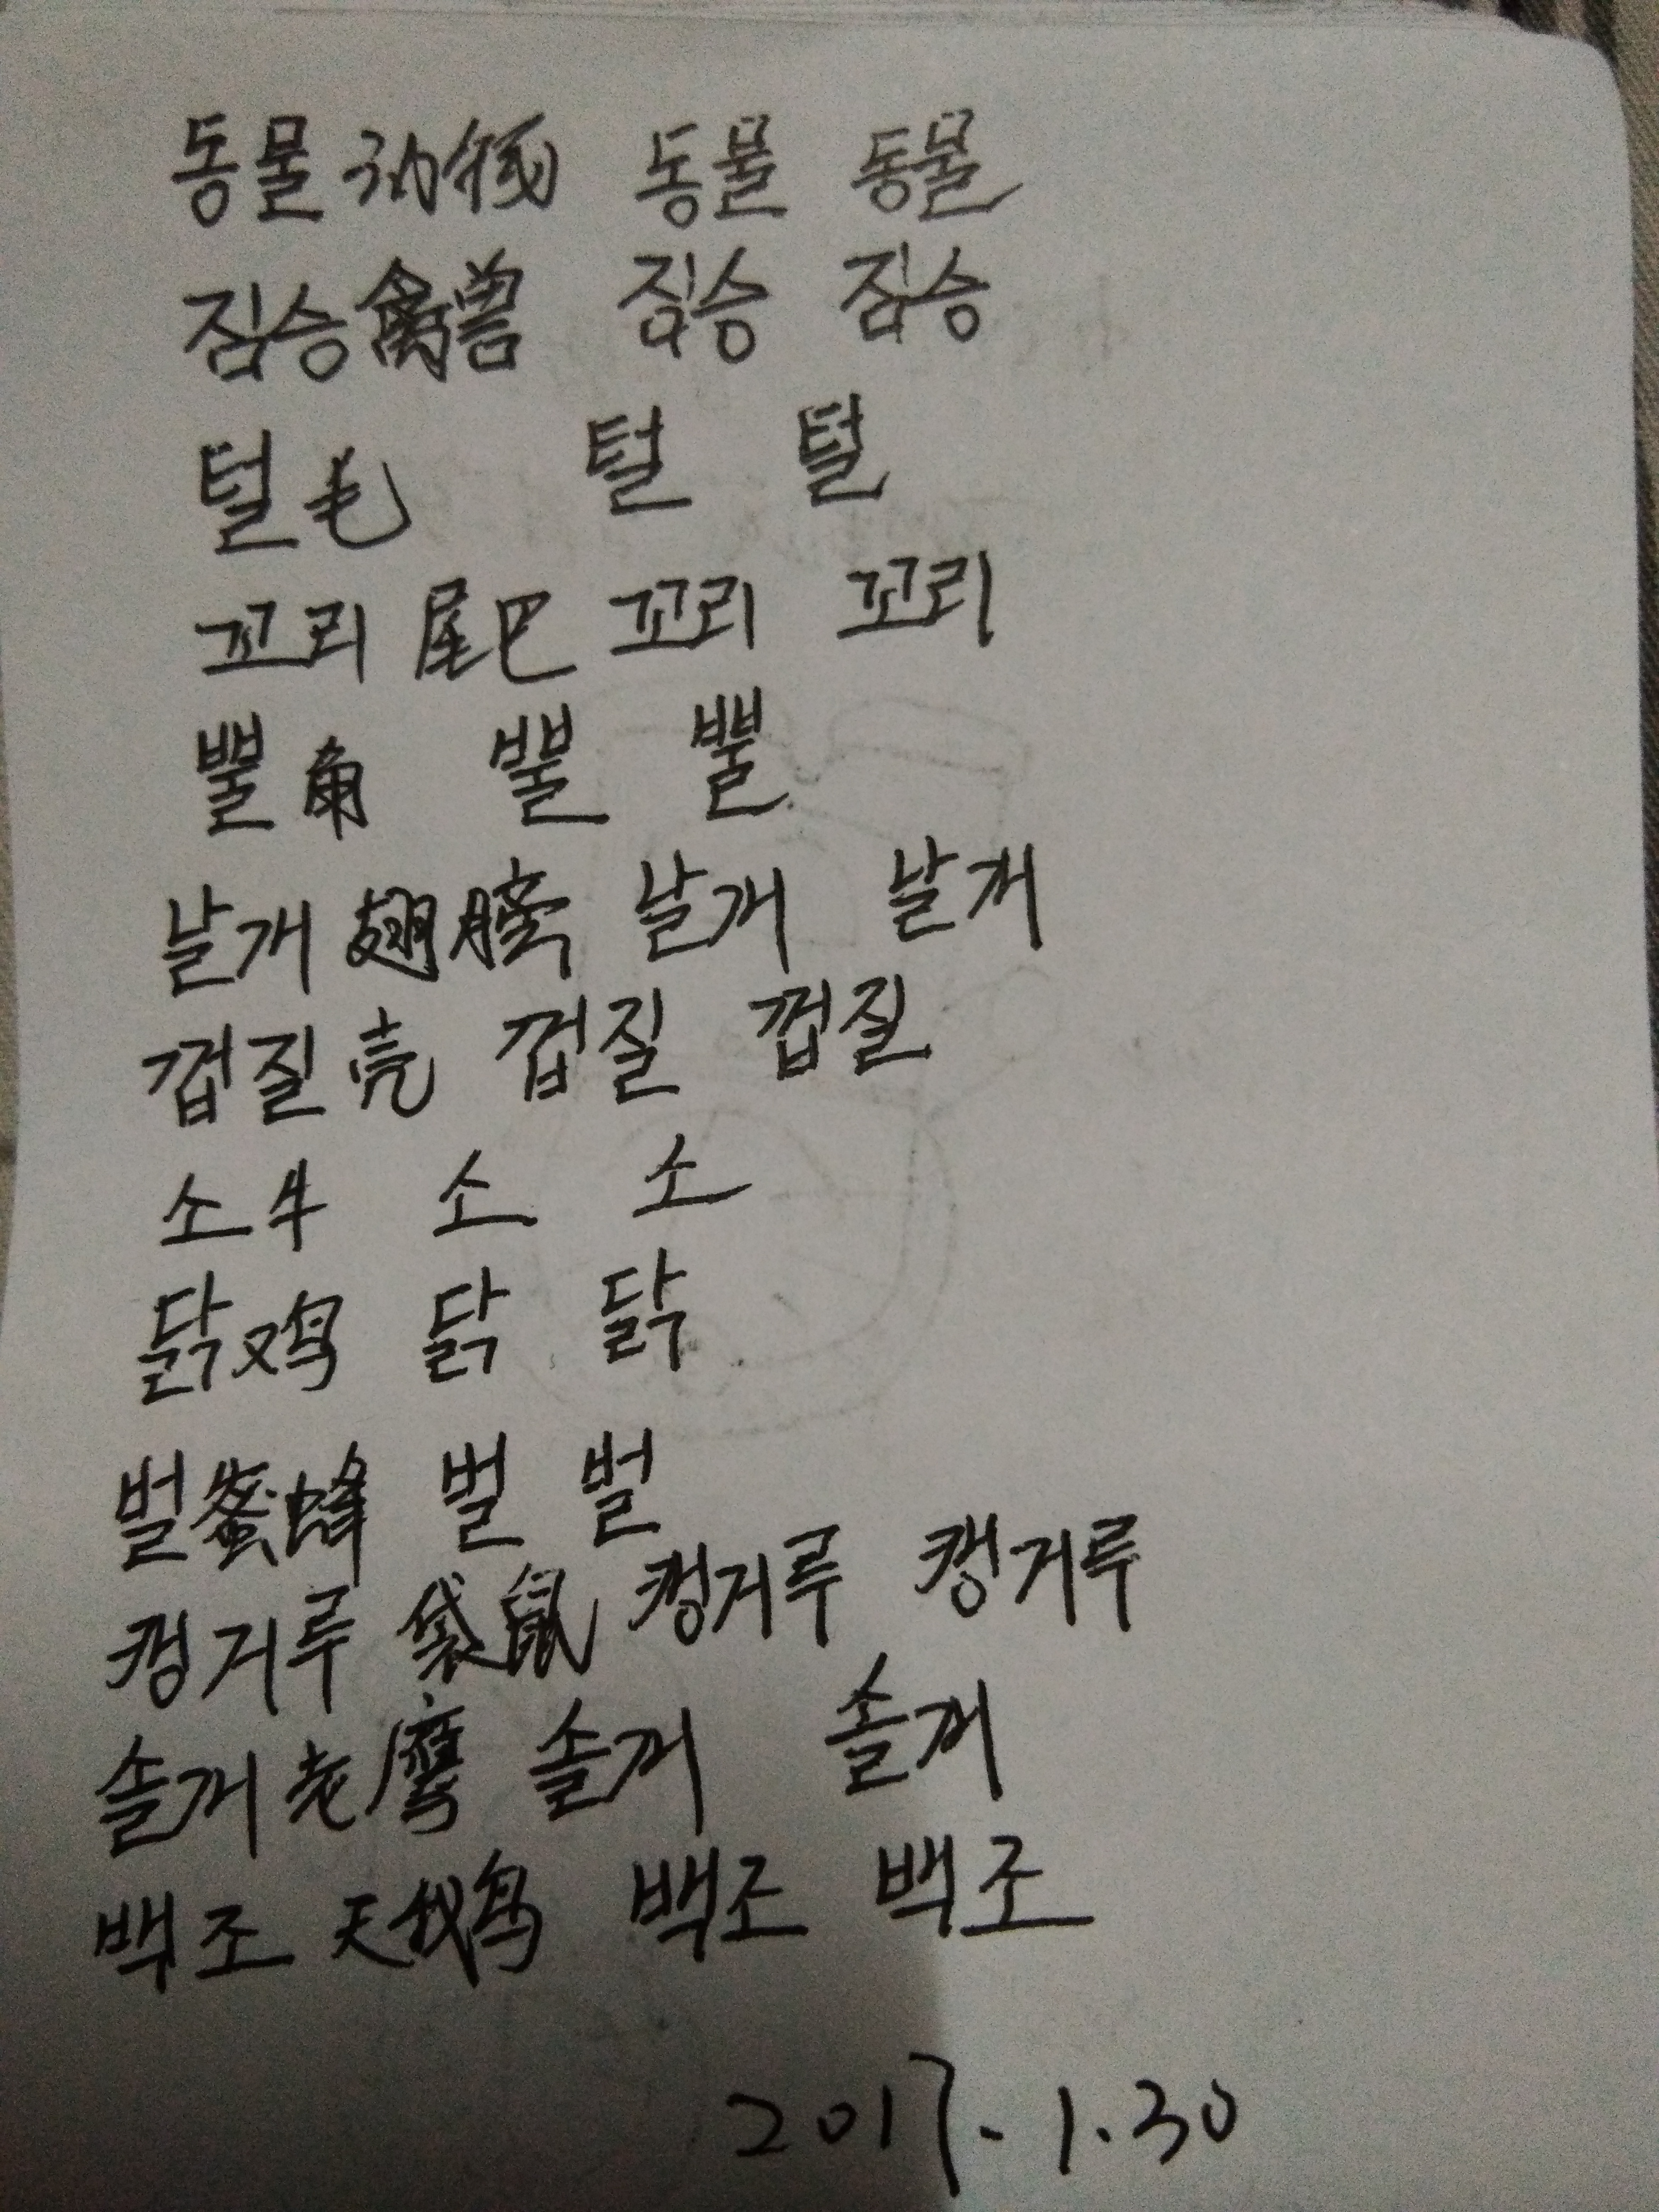 동물 动物 동물 동물
짐승 禽兽 짐승 짐승
털 毛 털 털
꼬리 尾巴 꼬리 꼬리
뿔 角 뿔 뿔
날개 翅膀 날개 날개
껍질 壳 껍질 껍질
소 牛 소 소
닭 鸡 닭 닭
벌 蜜蜂 벌 벌
캥거루 袋鼠 캥거루 캥거루
솔개 老鹰 솔개 솔개
백조 天鹅 백조 백조
2017.1.30